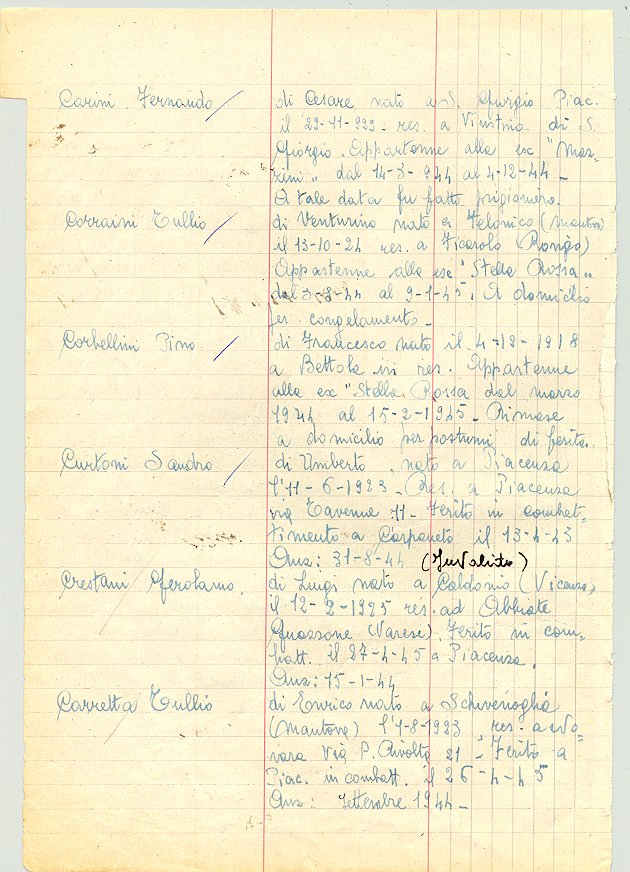 Carini Fernando / di Cesare nato a S. Giorgio Piac.
il 29-11-923 res. a Vigolzno di S.
Giorgio. Appartenne alla ex "Maz-
zini" dal 14-3-944 al 4-12-44 -
A tale data fu fatto prigioniero.
Corraini Tullio / di Venturino nato a Felonica (Mantova)
il 13-10-24 res. a Ficarolo (Rovigo)
Appartenne alla ex "Stella Rossa"
dal 3-8-44 al 9-1-45. A domicilio
per congelamento -
Corbellini Pino / di Francesco nato il 4-12-1918
a Bettola ivi res. Appartenne
alla ex "Stella Rossa dal marzo
1944 al 15-2-1945 - Rimase
a domicilio per postumi di ferita.
Curtoni Sandro / di Umberto, nato a Piacenza
l'11-6-1923 - Res. a Piacenza
via Taverna 11 - Ferito in combat-
timento a Carpaneto il 13-4-45
Anz: 31-8-44 (Invalido)
Crestani Gerolamo. di Luigi nato a Caldogno (Vicenza)
il 12-2-1925 res. ad Abbiate
Guazzone (Varese). Ferito in com-
batt. il 27-4-45 a Piacenza.
Anz: 15-1-44
Carretta Tullio di Enrico nato a Schivenoglia
(Mantova) l'1-8-1923, res. a No-
vara Via P. Rivolta 21 - Ferito a
Piac. in combatt. il 26-4-45
Anz: Settembre 1944 -